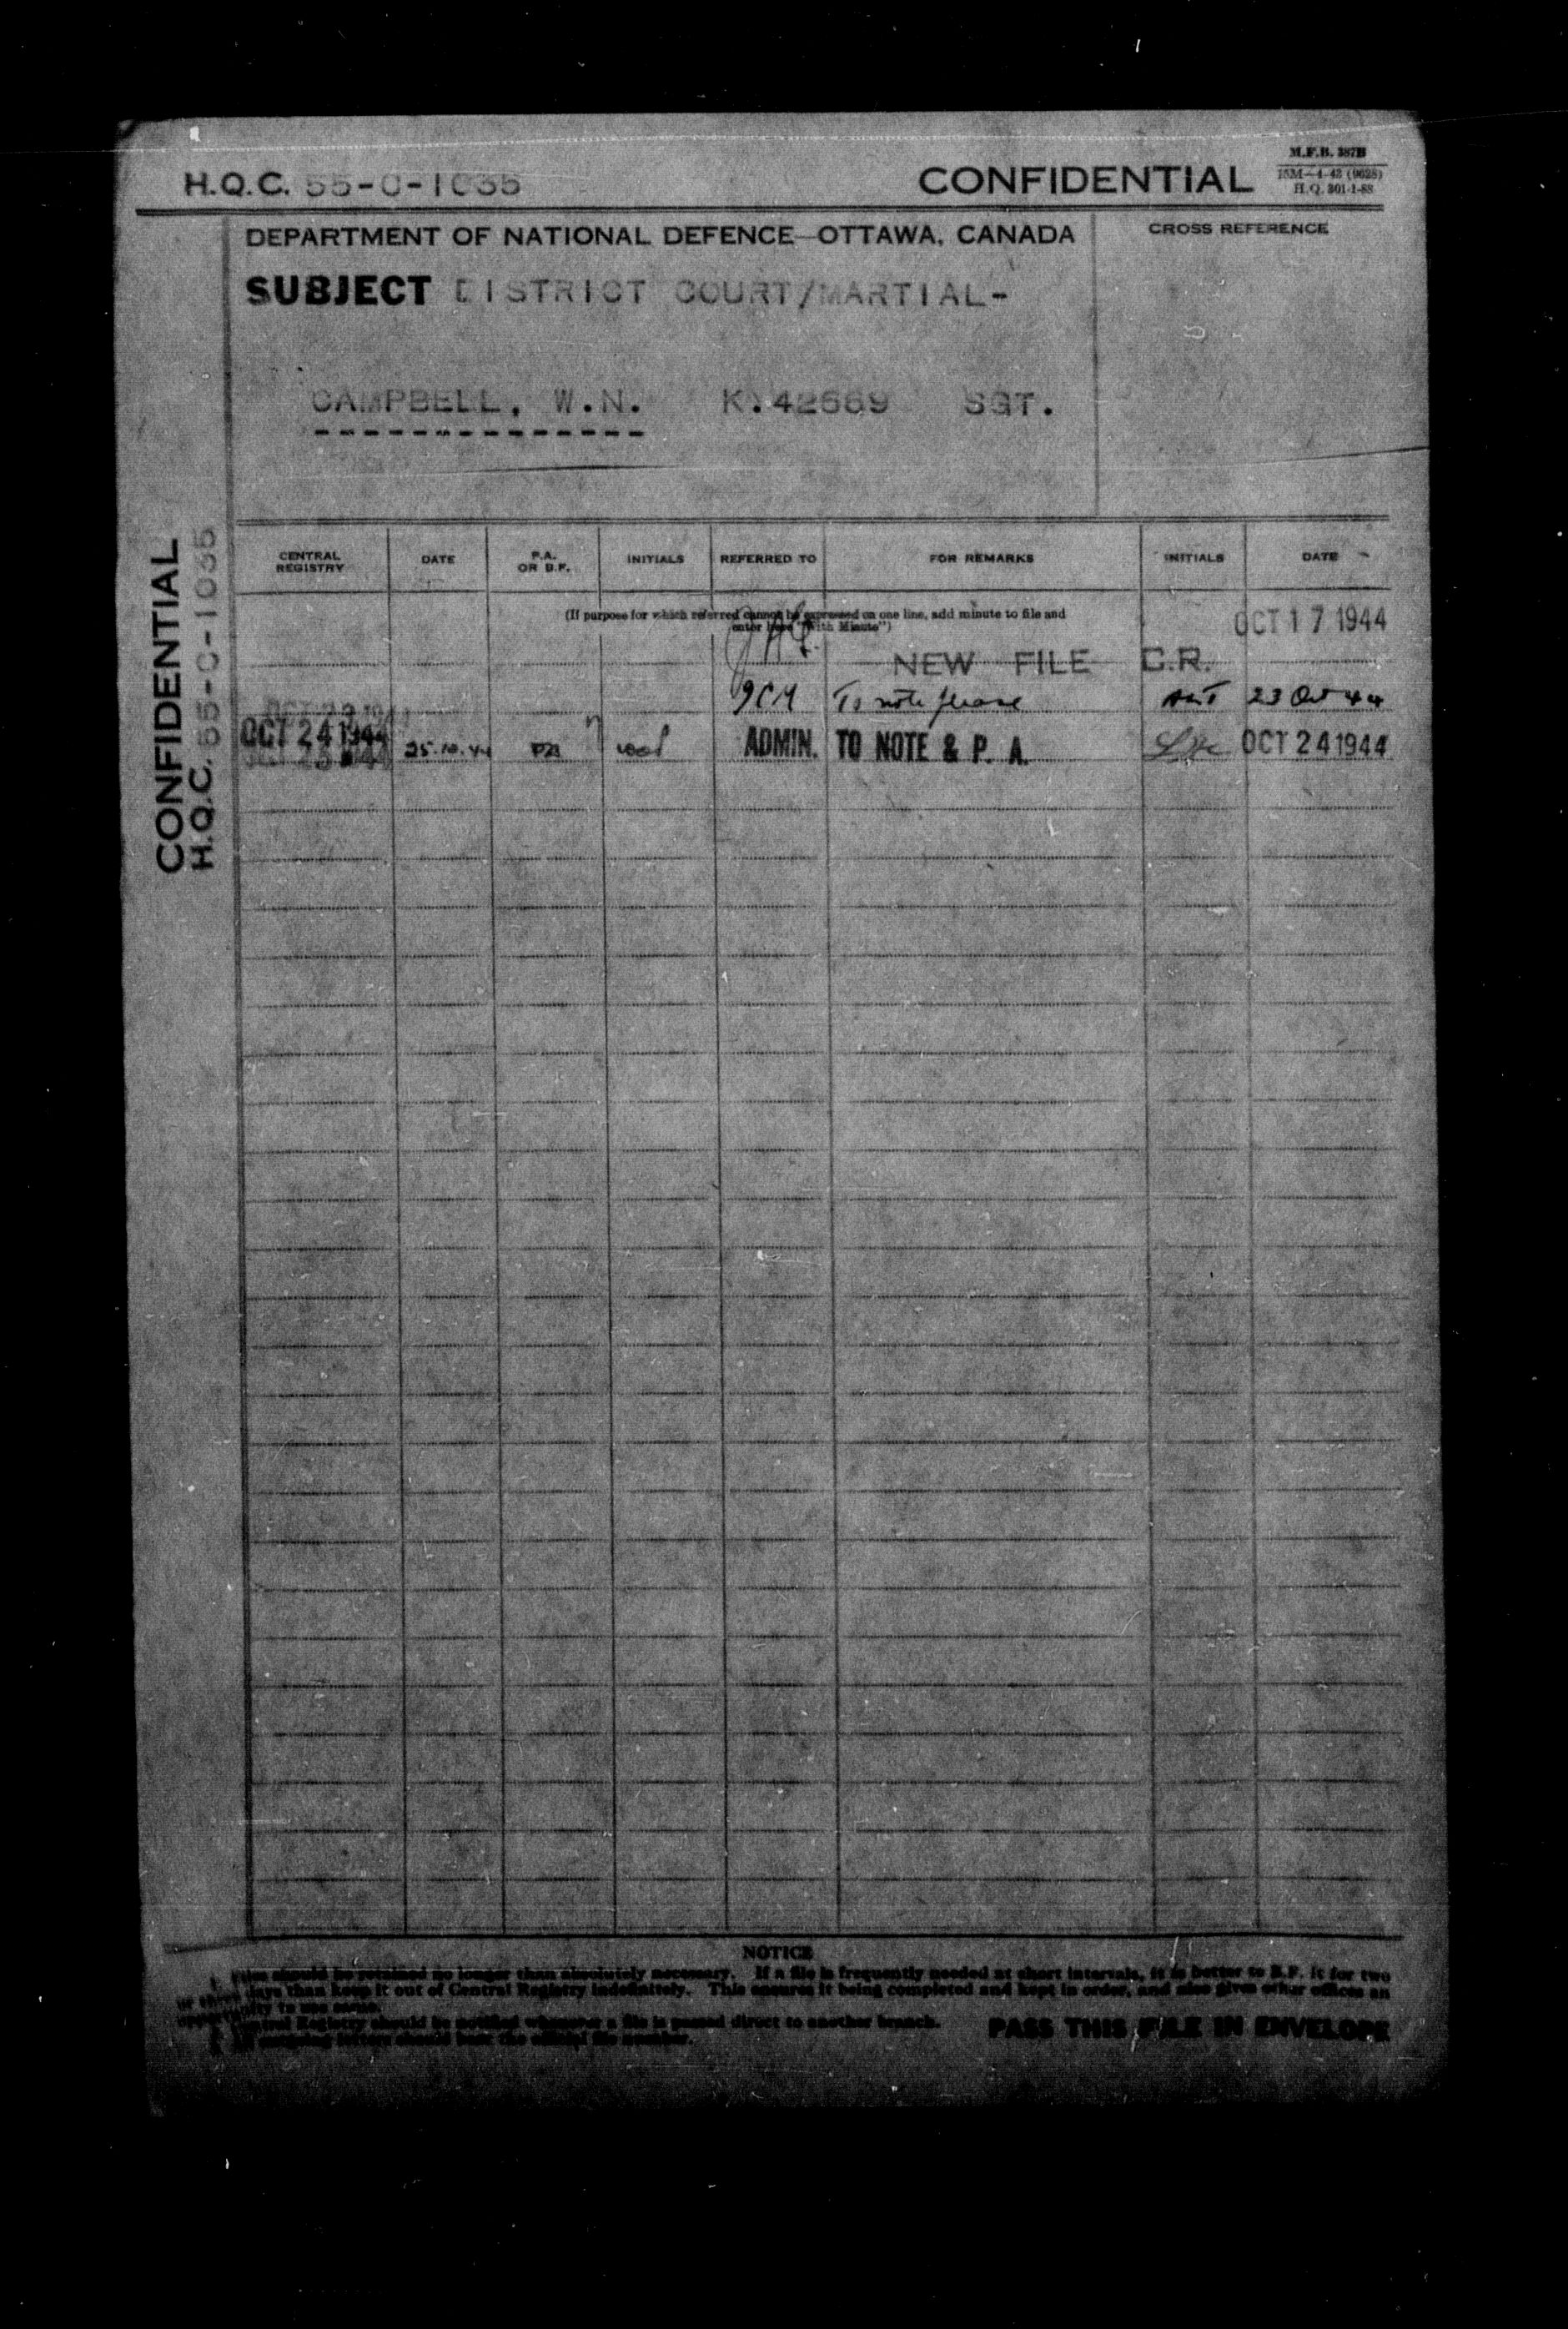 H.Q.C. 55-C-1035
CONFIDENTIAL
M.F.B. 387B
15M—4-43 (9628)
H.Q. 301-1-88
DEPARTMENT OF NATIONAL DEFENCE—OTTAWA, CANADA
CROSS REFERENCE
SUBJECT DISTRICT COURT/MARTIAL-
CAMPBELL, W.N. K.42669 SGT.
CONFIDENTIAL
H.Q.C. 55-C-1035
CENTRAL REGISTRY DATE P.A. OR B.F. INITIALS REFERRED TO FOR REMARKS INITIALS DATE
(If purpose for which referred cannot be expressed on one line, add minute to file and
enter here "With Minute")
OCT 17 1944
JAG.
NEW FILE C.R.
To note please 23 Oct 44
OCT 24 1944 25.10.44 PA ADMIN. TO NOTE & P. A. OCT 24 1944
NOTICE
Files should be retained no longer than absolutely necessary. If a file is frequently needed at short intervals, it is better to B.F. it for two
or three days than keep it out of Central Registry indefinitely. This ensures it being completed and kept in order, and also gives other offices an
opportunity to use same.
Central Registry should be notified whenever a file is passed direct to another branch.
should bear the official file number.
PASS THIS FILE IN ENVELOPE